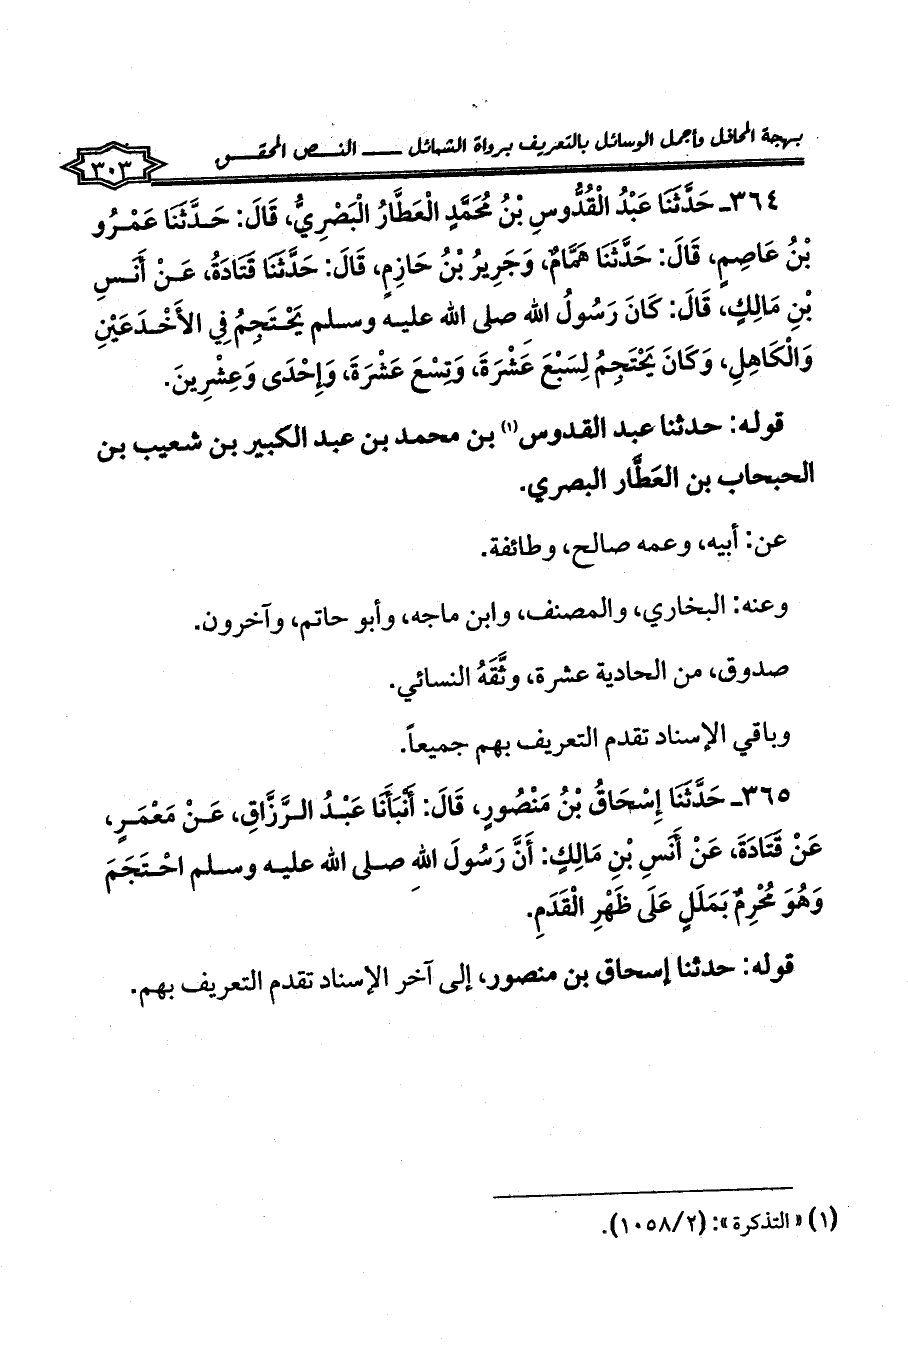 بهجة المحافل وأجمل الوسائل بالتعريف برواة الشمائل ـــ النص المحقق
٣٠٣
٣٦٤ـ حَدَّثَنَا عَبْدُ الْقُدُّوسِ بْنُ مُحَمَّدٍ الْعَطَّارُ الْبَصْرِيُّ، قَالَ: حَدَّثَنَا عَمْرُو
بْنُ عَاصِمٍ، قَالَ: حَدَّثَنَا هَمَّامٌ، وَجَرِيرُ بْنُ حَازِمٍ، قَالَ: حَدَّثَنَا قَتَادَةُ، عَنْ أَنَسِ
بْنِ مَالِكٍ، قَالَ: كَانَ رَسُولُ الله صلى الله عليه وسلم يَحْتَجِمُ فِي الأَخْدَعَيْنِ
وَالْكَاهِلِ، وَكَانَ يَحْتَجِمُ لِسَبْعَ عَشْرَةَ، وَتِسْعَ عَشْرَةَ، وَإِحْدَى وَعِشْرِينَ.
قوله: حدثنا عبد القدوس(١) بن محمد بن عبد الكبير بن شعيب بن
الحبحاب بن العَطَّار البصري.
عن: أبيه، وعمه صالح، وطائفة.
وعنه: البخاري، والمصنف، وابن ماجه، وأبو حاتم، وآخرون.
صدوق، من الحادية عشرة، وثَّقَهُ النسائي.
وباقي الإسناد تقدم التعريف بهم جميعاً.
٣٦٥ـ حَدَّثَنَا إِسْحَاقُ بْنُ مَنْصُورٍ، قَالَ: أَنْبَأَنَا عَبْدُ الرَّزَّاقِ، عَنْ مَعْمَرٍ،
عَنْ قَتَادَةَ، عَنْ أَنَسِ بْنِ مَالِكٍ: أَنَّ رَسُولَ الله صلى الله عليه وسلم احْتَجَمَ
وَهُوَ مُحْرِمٌ بَمَلَلٍ عَلَى ظَهْرِ الْقَدَمِ.
قوله: حدثنا إسحاق بن منصور، إلى آخر الإسناد تقدم التعريف بهم.
(١) «التذكرة»: (١٠٥٨/٢).